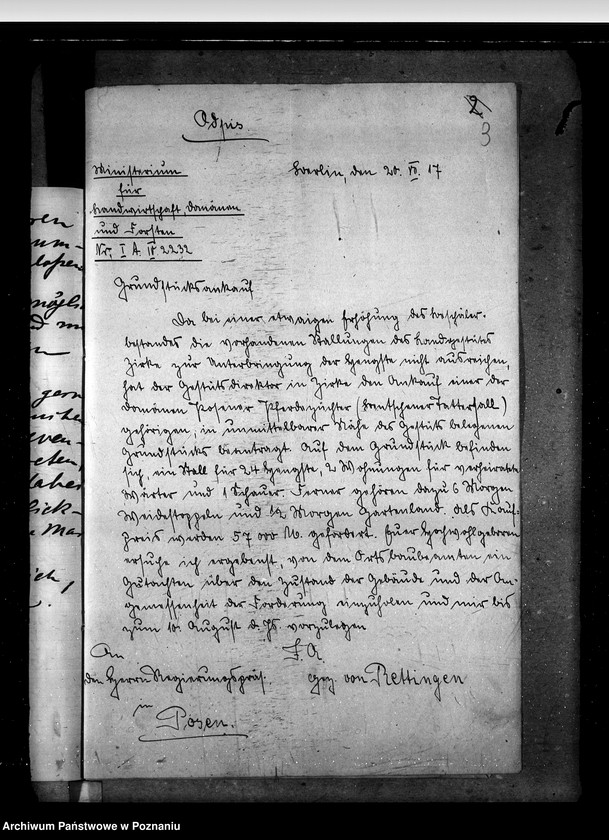 Odpis
2
3
Ministerium
für
Landwirtschaft, Domänen
und Forsten
Nr. I A. IV 2232
Berlin, den 20. VII. 17
Grundstücksankauf
Da bei einer etwaigen Erhöhung des Beschäler-
bestandes die vorhandenen Stallungen des Landgestüts
Zirke zur Unterbringung der Hengste nicht ausreichen,
hat der Gestütsdirektor in Zirke den Ankauf eines der
Domänen Posener Pferdezüchter (Bentschener Tattersall)
gehörigen, in unmittelbarer Nähe des Gestüts belegenen
Grundstücks beantragt. Auf dem Grundstück befinden
sich, ein Stall für 24 Hengste, 2 Wohnungen für verheiratete
Wärter und 1 Scheuer. Ferner gehören dazu 6 Morgen
Weidestoppeln und 1/2 Morgen Gartenland. Als Kauf-
preis werden 57 000 M. gefordert. Euer Hochwohlgeboren
ersuche ich ergebenst, von dem Ortsbaubeamten ein
Gutachten über den Zustand der Gebäude und der An-
gemessenheit der Forderung einzuholen und mir bis
zum 10. August d. Js. vorzulegen.
An
den Herrn Regierungspräs.
in
Posen.
I. A.
gez. von Rettingen
Archiwum Państwowe w Poznaniu